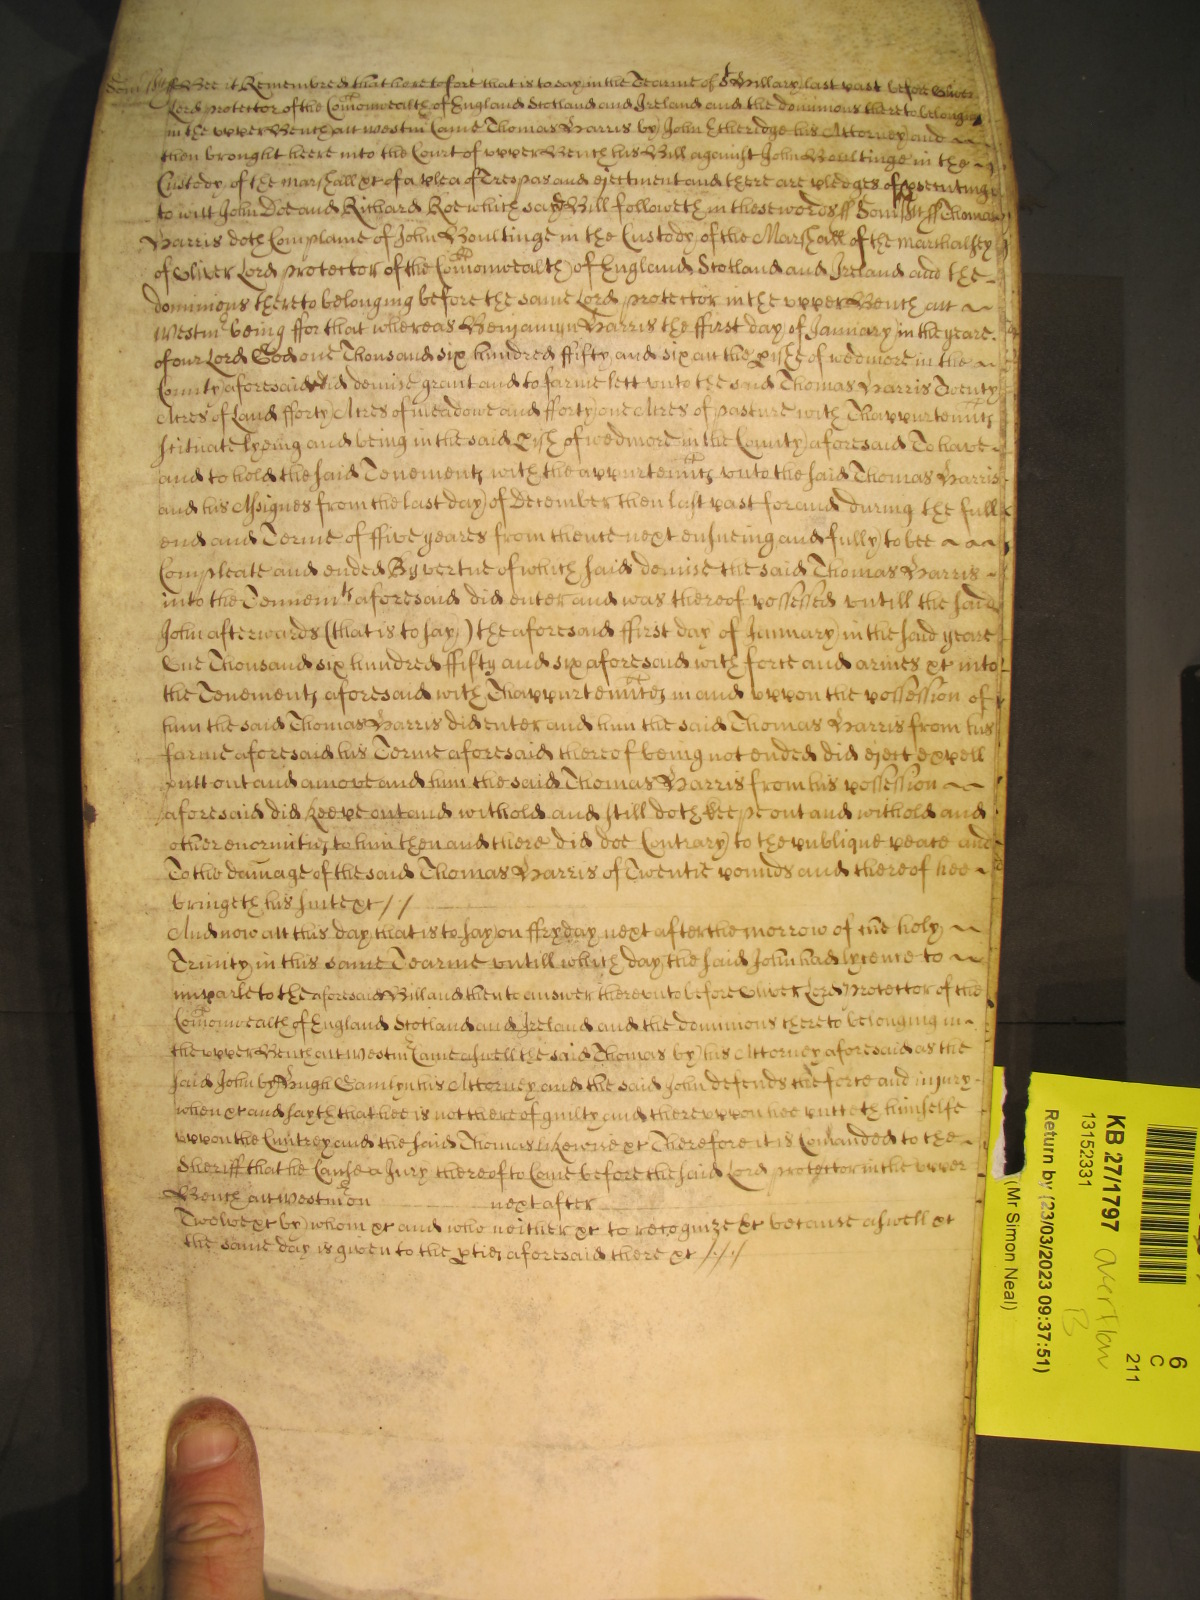 Som̃s ss Bee it Remembred that heretofore that is to say in the Tearme of St Hillary last past before Oliver
Lord protector of the Com̃onwealth of England Scotland and Ireland and the dominions thereto belonging
in the upper Bench att Westm̃ Came Thomas Harris by John Etheridge his Attorney and
then brought heere into the Court of upper Bench his Bill against John Boultinge in the
Custody of the marshall &c of a plea of Trespas and eiectment and there are pledges of prosecuting
to witt John Doe and Richard Roe which said Bill followeth in these words ss Som̃s ss Thomas
Harris doth Complaine of John Boultinge in the Custody of the Marshall of the marshalsey
of Oliver Lord protector of the Com̃onwealth of England Scotland and Ireland and the
dominions thereto belonging before the same Lord protector in the upper Bench att
Westm̃ being ffor that whereas Benjamyn Harris the ffirst day of January in the yeare
of our Lord God one Thousand six hundred ffifty and six att the pish of wedmore in the
County aforesaid did demise grant and to farme lett unto the said Thomas Harris Twenty
Acres of Land fforty Acres of meadowe and fforty one Acres of pasture with Thappurten̄ntes
scituate lyeing and being in the said pish of wedmore in the County aforesaid To have
and to hold the said Tenementes with the appurten̄ntes unto the said Thomas Harris
and his Assignes from the last day of December then last past for and during the full
end and Terme of ffive yeares from thence next ensueing and fully to bee
Compleate and ended By vertue of which said demise the said Thomas Harris
into the Tennemts aforesaid did enter and was thereof possessed untill the said
John afterwards (that is to say) the aforesaid ffirst day of January in the said yeare
One Thousand six hundred ffifty and six aforesaid with force and armes &c into
the Tenementes aforesaid with Thappurten̄ntes in and uppon the possession of
him the said Thomas Harris did enter and him the said Thomas Harris from his
farme aforesaid his Terme aforesaid thereof being not ended did eject expell
putt out and amove and him the said Thomas Harris from his possession
aforesaid did keepe out and withold and still doth keepe out and withold and
other enormities to him then and there did doe Contrary to the publique peace and
To the damage of the said Thomas Harris of Twentie pounds and thereof hee
bringeth his suite &c //
And now att this day that is to say on ffryday next after the morrow of the holy
Trinity in this same Tearme untill which day the said John had lycence to
imparle to the aforesaid Bill and then to answer thereunto before Oliver Lord Protector of the
Com̃onwealth of England Scotland and Ireland and the dominions thereto belonging in
the upper Bench att westm̃ Came aswell the said Thomas by his Attorney aforesaid as the
said John by Hugh Gamlyn his Attorney and the said John defends the force and injury
when &c and sayth that hee is not thereof guilty and thereuppon hee putteth himselfe
uppon the Cuntrey and the said Thomas likewise &c Therefore it is Com̃anded to the
Sheriff that he Cause a Jury thereof to Come before the said Lord protector in the upper
Bench att westm̃ on next after
Twelve &c by whom &c and who neither &c to recognize &c because aswell &c
the same day is given to the pties aforesaid there &c //
KB 27/1797 overflow B
13152331
Return by (23/03/2023 09:37:51)
(Mr Simon Neal)
6
C
211